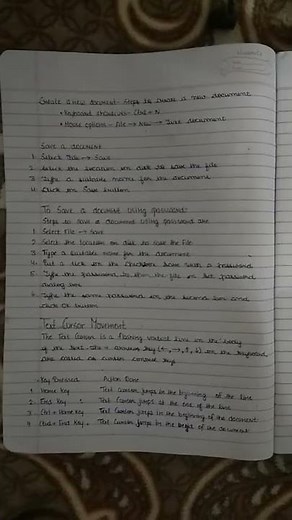 Create a new document - Steps to create a new document
• Keyboard shortcut - Ctrl + N
• Mouse options - File → New → Text document
Save a document
1 Select File → Save
2 Select the location on disk to save the file
3 Type a suitable name for the document
4 Click on Save button
To Save a document using password:
Steps to save a document using password are
1 Select File → Save
2 Select the location on disk to save the File
3 Type a suitable name for the document
4 Put a tick on the checkbox Save with a Password
5 Type the password to the file in the password
6 Type the same password in the box and
click OK button
Text Cursor Movement
The Text Cursor is a flashing vertical line in the
of the text. The arrow key (←, →, ↑, ↓) on the keyboard
are called as cursor control keys
Key Pressed Action Done
1 Home Key Text Cursor jumps in the beginning of the line
2 End Key : Text Cursor jumps at the end of the line
3 Ctrl + Home Key : Text Cursor jumps in the beginning of the document
4 Ctrl + End Key . Text Cursor jumps in the of the document